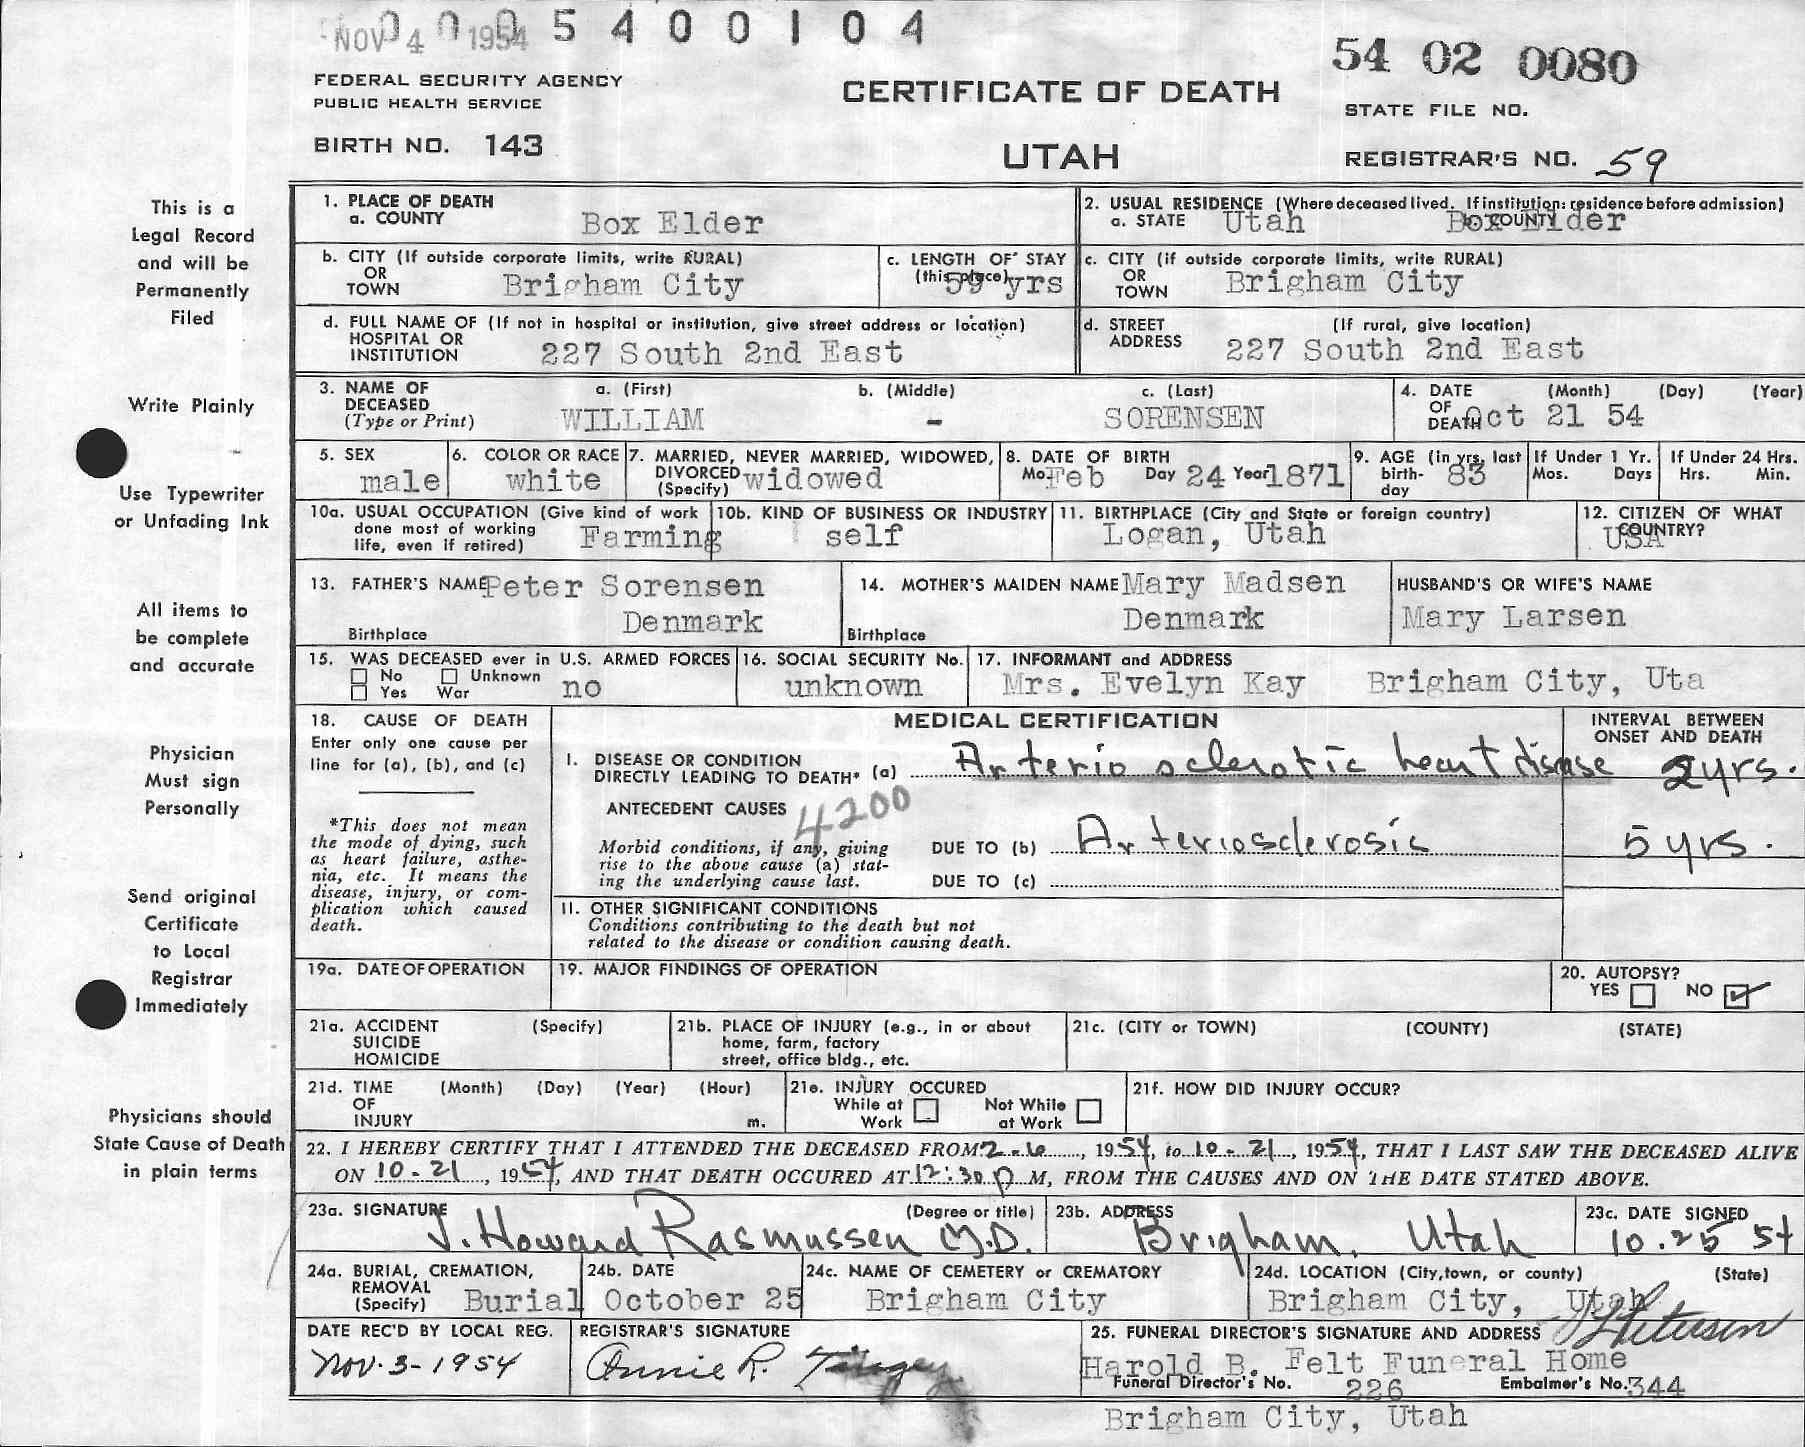 NOV 4 1954 0005400104
54 02 0080
FEDERAL SECURITY AGENCY
PUBLIC HEALTH SERVICE
CERTIFICATE OF DEATH
STATE FILE NO.
BIRTH NO. 143
UTAH
REGISTRAR'S NO. 59
This is a
Legal Record
and will be
Permanently
Filed
Write Plainly
Use Typewriter
or Unfading Ink
All items to
be complete
and accurate
Physician
Must sign
Personally
Send original
Certificate
to Local
Registrar
Immediately
Physicians should
State Cause of Death
in plain terms
1. PLACE OF DEATH
a. COUNTY Box Elder
2. USUAL RESIDENCE (Where deceased lived. If institution: residence before admission)
a. STATE Utah b. COUNTY Box Elder
b. CITY (If outside corporate limits, write RURAL)
OR
TOWN Brigham City
c. LENGTH OF STAY
(this place) 59 yrs
c. CITY (if outside corporate limits, write RURAL)
OR
TOWN Brigham City
d. FULL NAME OF (If not in hospital or institution, give street address or location)
HOSPITAL OR
INSTITUTION 227 South 2nd East
d. STREET (If rural, give location)
ADDRESS 227 South 2nd East
3. NAME OF a. (First) b. (Middle) c. (Last)
DECEASED
(Type or Print) WILLIAM - SORENSEN
4. DATE (Month) (Day) (Year)
OF
DEATH Oct 21 54
5. SEX
male
6. COLOR OR RACE
white
7. MARRIED, NEVER MARRIED, WIDOWED,
DIVORCED widowed
(Specify)
8. DATE OF BIRTH
Mo. Feb Day 24 Year 1871
9. AGE (in yrs. last
birth- 83
day
If Under 1 Yr.
Mos. Days
If Under 24 Hrs.
Hrs. Min.
10a. USUAL OCCUPATION (Give kind of work
done most of working
life, even if retired) Farming
10b. KIND OF BUSINESS OR INDUSTRY
self
11. BIRTHPLACE (City and State or foreign country)
Logan, Utah
12. CITIZEN OF WHAT
COUNTRY?
USA
13. FATHER'S NAME Peter Sorensen
Denmark
Birthplace
14. MOTHER'S MAIDEN NAME Mary Madsen
Denmark
Birthplace
HUSBAND'S OR WIFE'S NAME
Mary Larsen
15. WAS DECEASED ever in U.S. ARMED FORCES
No Unknown
Yes War no
16. SOCIAL SECURITY No.
unknown
17. INFORMANT and ADDRESS
Mrs. Evelyn Kay Brigham City, Uta
18. CAUSE OF DEATH
Enter only one cause per
line for (a), (b), and (c)
*This does not mean
the mode of dying, such
as heart failure, asthe-
nia, etc. It means the
disease, injury, or com-
plication which caused
death.
MEDICAL CERTIFICATION
INTERVAL BETWEEN
ONSET AND DEATH
I. DISEASE OR CONDITION
DIRECTLY LEADING TO DEATH* (a) Arterio sclerotic heart disease 2 yrs.
ANTECEDENT CAUSES 4200
Morbid conditions, if any, giving
rise to the above cause (a) stat-
ing the underlying cause last.
DUE TO (b) Arteriosclerosis 5 yrs.
DUE TO (c)
II. OTHER SIGNIFICANT CONDITIONS
Conditions contributing to the death but not
related to the disease or condition causing death.
19a. DATE OF OPERATION
19. MAJOR FINDINGS OF OPERATION
20. AUTOPSY?
YES NO ✓
21a. ACCIDENT (Specify)
SUICIDE
HOMICIDE
21b. PLACE OF INJURY (e.g., in or about
home, farm, factory
street, office bldg., etc.
21c. (CITY or TOWN) (COUNTY) (STATE)
21d. TIME (Month) (Day) (Year) (Hour)
OF
INJURY m.
21e. INJURY OCCURED
While at Work Not While at Work
21f. HOW DID INJURY OCCUR?
22. I HEREBY CERTIFY THAT I ATTENDED THE DECEASED FROM 2-6, 1954, to 10-21, 1954, THAT I LAST SAW THE DECEASED ALIVE
ON 10-21, 1954, AND THAT DEATH OCCURED AT 12:30 p M, FROM THE CAUSES AND ON THE DATE STATED ABOVE.
23a. SIGNATURE (Degree or title)
J. Howard Rasmussen M.D.
23b. ADDRESS
Brigham, Utah
23c. DATE SIGNED
10.25 54
24a. BURIAL, CREMATION,
REMOVAL
(Specify) Burial
24b. DATE
October 25
24c. NAME OF CEMETERY or CREMATORY
Brigham City
24d. LOCATION (City, town, or county) (State)
Brigham City, Utah
DATE REC'D BY LOCAL REG.
Nov. 3-1954
REGISTRAR'S SIGNATURE
Annie R. Tingey
25. FUNERAL DIRECTOR'S SIGNATURE AND ADDRESS
Harold B. Felt Funeral Home
Funeral Director's No. 226 Embalmer's No. 344
Brigham City, Utah